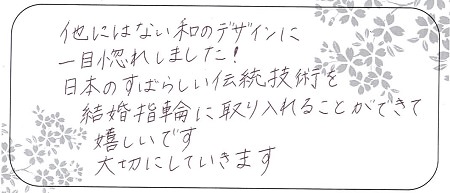 他にはない和のデザインに
一目惚れしました!
日本のすばらしい伝統技術を
結婚指輪に取り入れることができて
嬉しいです
大切にしていきます